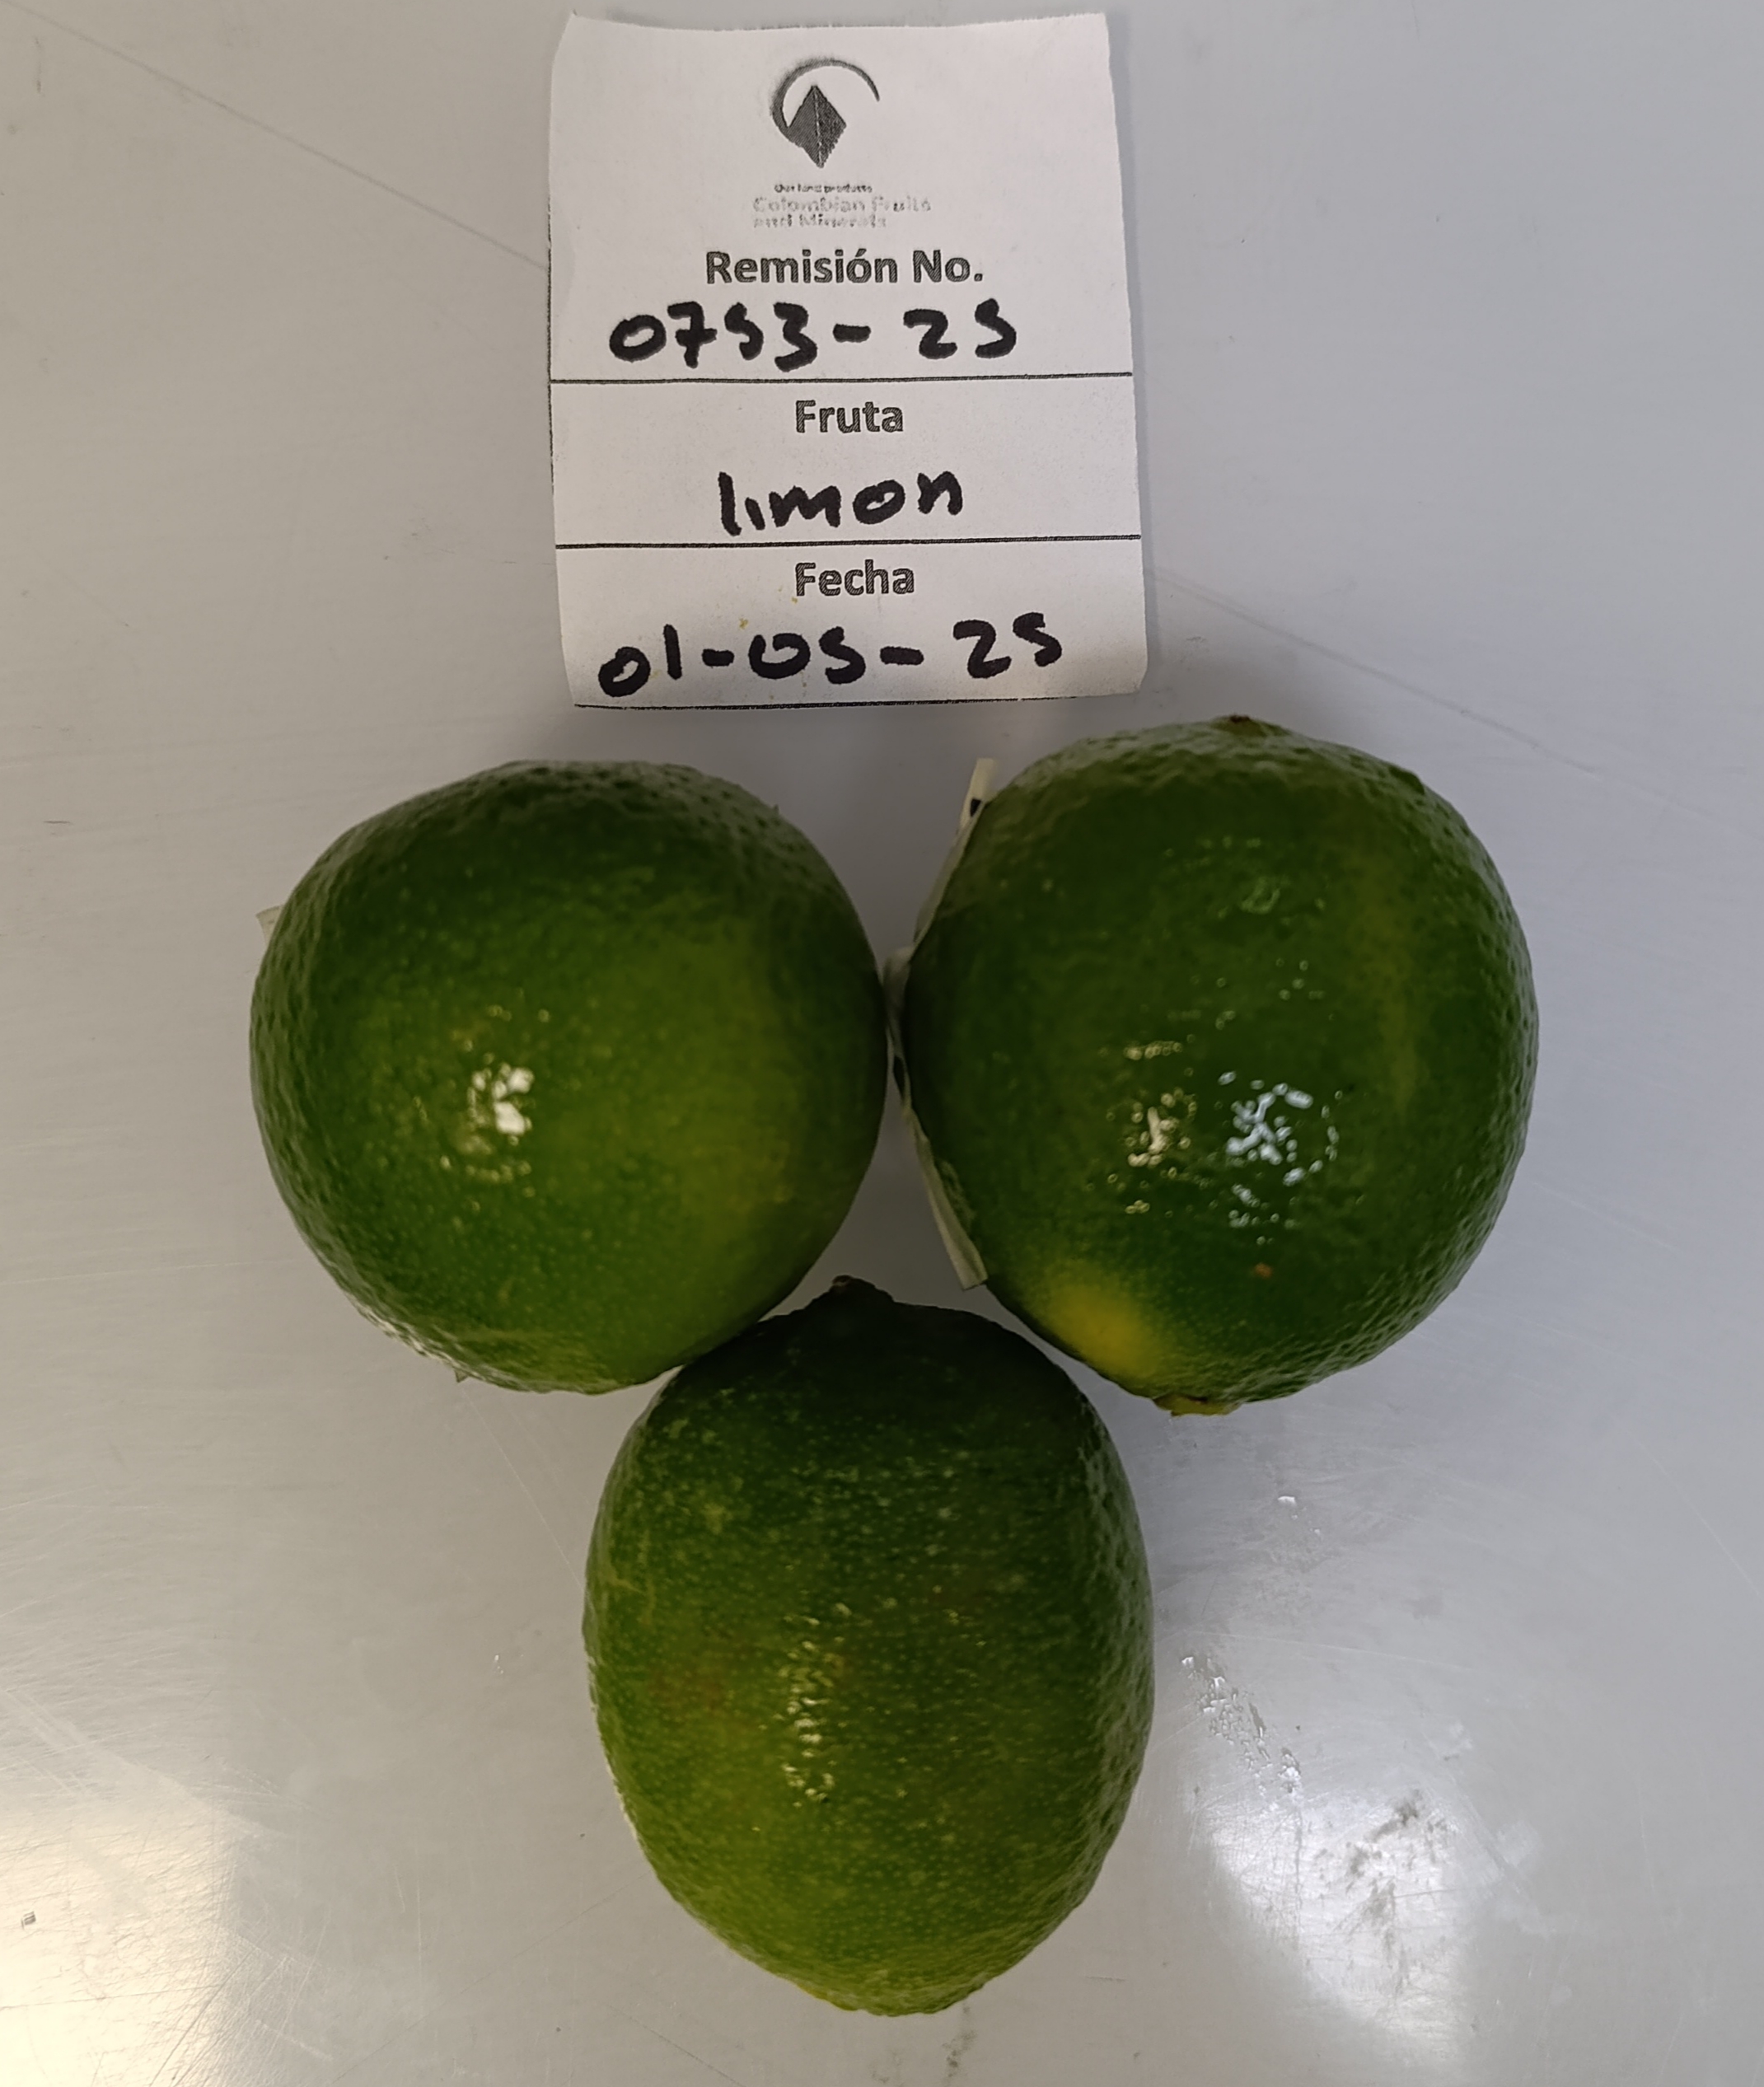 Our land products
Colombian Fruits
and Minerals
Remisión No.
0753-25
Fruta
limon
Fecha
01-05-25